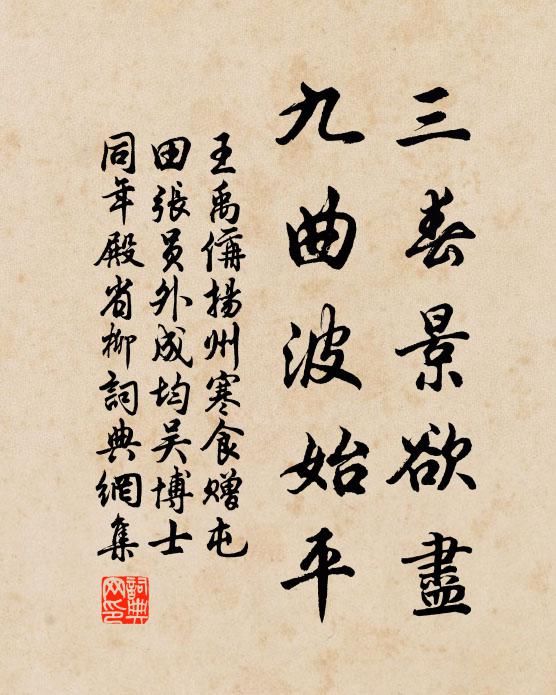 三春景欲盡
九曲波始平
王禹偁揚州寒食贈屯
田張員外成均吴博士
同年殿省柳詞典網集
詞典
网印